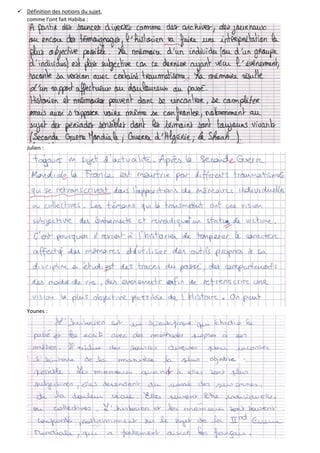 ✓ Définition des notions du sujet.
comme l'ont fait Habiba :
A partir des sources diverses comme des archives, des journaux
ou encore des témoignages, l'historien va faire une interprétation la
plus objective possible. La mémoire d'un individu (ou d'un groupe
d'individus) est plus subjective car ce dernier ayant vécu l'événement,
raconte sa version avec certains traumatisme. La mémoire résulte
d'un rapport affectueux ou douloureux au passé.
Historien et mémoires peuvent donc se rencontrer, se compléter
mais aussi s'opposer voire même se confronter, notamment au
sujet des périodes sensibles dont les témoins sont toujours vivants
(Seconde Guerre Mondiale, Guerre d'Algérie, la Shoah).
Julien :
sujet d'actualité. Après la Seconde Guerre
Mondiale la France est meurtrie par différents traumatismes
qui se retranscrivent dans l'apparition de mémoires individuelles
ou collectives. Les témoins qui la transmettent ont une vision
subjective des événements et revendiquent un statut de victime.
C'est pourquoi il revient à l'historien de tempérer le caractère
affectif des mémoires et d'utiliser des outils propres à sa
discipline
des modes de vie, des événements afin de retranscrire une
vision la plus objective possible de l'Histoire. On peut
Younes :
L'historien est un scientifique qui étudie le
passé et écrit avec des méthodes
la manière la plus objective
possible. Les mémoires quand à elles sont plus
subjectives, elles dépendent du vécu des personnes,
de la douleur vécue. Elles peuvent être individuelles
ou collectives. L'historien et les mémoires sont souvent
confrontés, notamment sur le sujet de la IInd Guerre
mondiale, qui a fortement divisé les français.